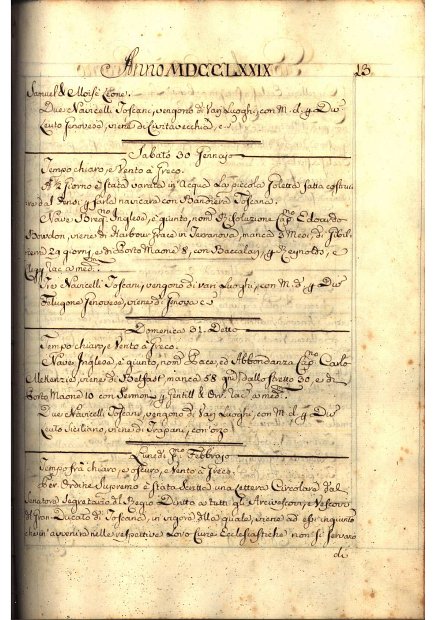 Anno MDCCLXXIX 13
Samuel & Moisè Leone.
Due Navicelli Toscani, vengono di Vari Luoghi, con M. d. g. Due
Leuto Genovese, viene di Civitavecchia, e
Sabato 30 Gennajo
Tempo chiaro, e Vento a Greco.
giorno è stata varata in acqua La piccola Goletta fatta costrui
navicare con Bandiera Toscana.
Nave Inglese, è giunto, nom. Risoluzione Cap.no Edoardo
Bowdon, viene di Harbour Grace in Terranova, manca 3 Mesi, di Gibil
terra 29 giorni, e di Porto Maone 8, con Baccalà, g. Reynolds, e
med.
Tre Navicelli Toscani, vengono di vari Luoghi, con M. d. g. Due
Felugone Genovese, viene di Genova e
Domenica 31. Detto
Tempo chiaro, e Vento a Greco.
Nave Inglese, è giunto, nom. Pace, ed Abbondanza Cap.no Carlo
McKenzie, viene di Belfast manca 58 dallo stretto 30, e di
Porto Maone 10 con Sermon g. Gentill & Orr.
Due Navicelli Toscani, vengono di Vari Luoghi, con M. d. g. Due
Leuto Siciliano, viene di Trapani, con orzo
Lunedì p.mo Febbrajo
Tempo frà chiaro, e oscuro, e Vento a Greco.
Per Ordine Supremo è stata una Lettera Circolare dal
Senatore Segretario del Regio Diritto a tutti gli Arcivescovi, e Vescovi
del Gran Ducato di Toscana, in vigore della quale, viene ad essi ingiunto
che in avvenire nelle respettive Loro Curie Ecclesiastiche non si servano
di